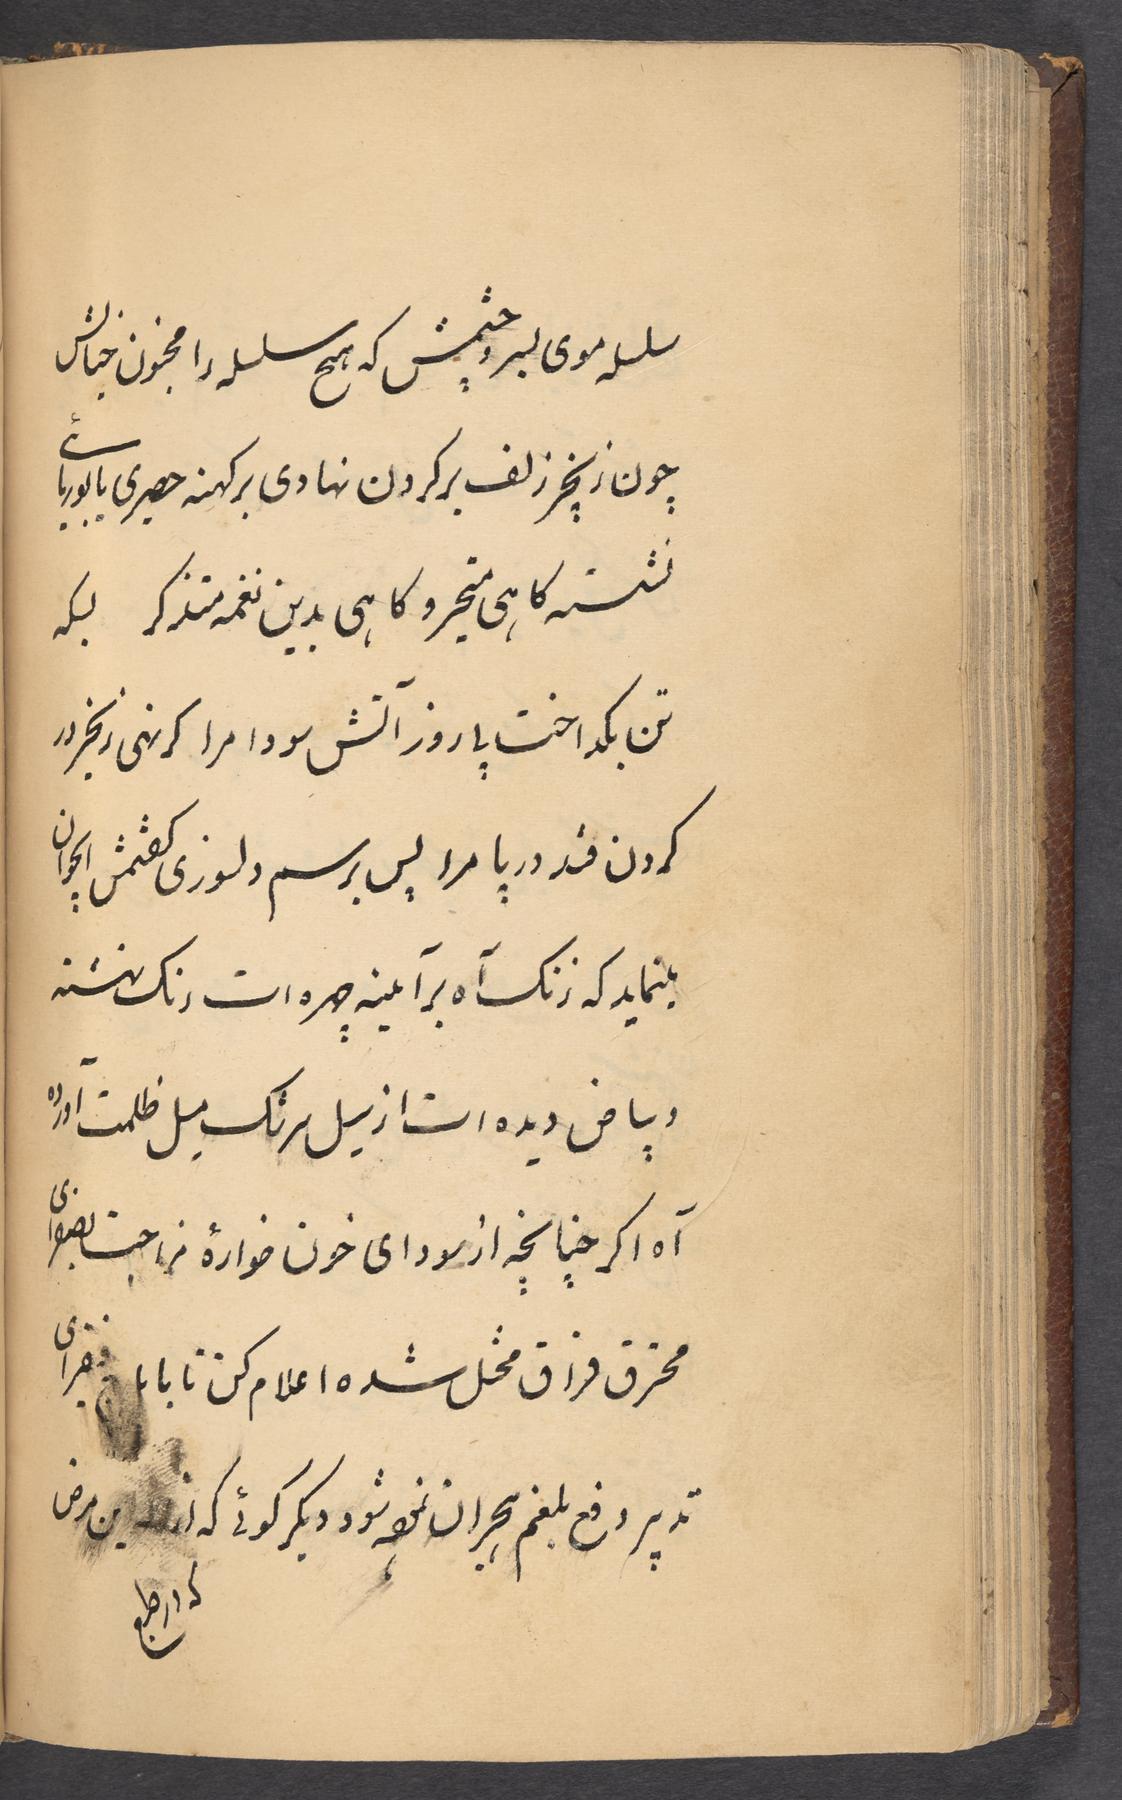 سلسله موی بسر و چشمش که هیچ سلسله را مجنون خیالش
چون زنجیر زلف بر کردن نهادی بر کهنه حصیری یا بوریائے
نشسته کاهی متحیر و کاهی بدین نغمه متذکر بسکه
تن بکداخت پا روز آتش سودا مرا کر نهی زنجیر در
کردن فتد در پا مرا پس برسم دلسوزی کفتمش ایجوان
بنماید که زنک آه بر آیینه چهره ات رنک بسته
و بیاض دیده ات از سیل سرشک میل ظلمت آورده
آه اکر چنانچه از سودای خون خوارهٔ مزاجت بصفرای
محترق فراق منحل شده اعلام کن تا بابا
تدبیر دفع بلغم هجران نموده شود و دیکر کوئے که این مرض
که در طبع